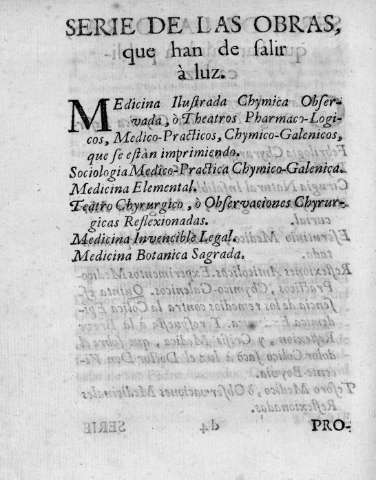 SERIE DE LAS OBRAS,
que han de salir
à luz.
MEdicina Ilustrada Chymica Obser-
vada, ò Theatros Pharmaco-Logi-
cos, Medico-Practicos, Chymico-Galenicos,
que se estàn imprimiendo.
Sociologia Medico-Practica Chymico-Galenica.
Medicina Elemental.
Teatro Chyrurgico, ò Observaciones Chyrur-
gicas Reflexionadas.
Medicina Invencible Legal.
Medicina Botanica Sagrada.
PRO-